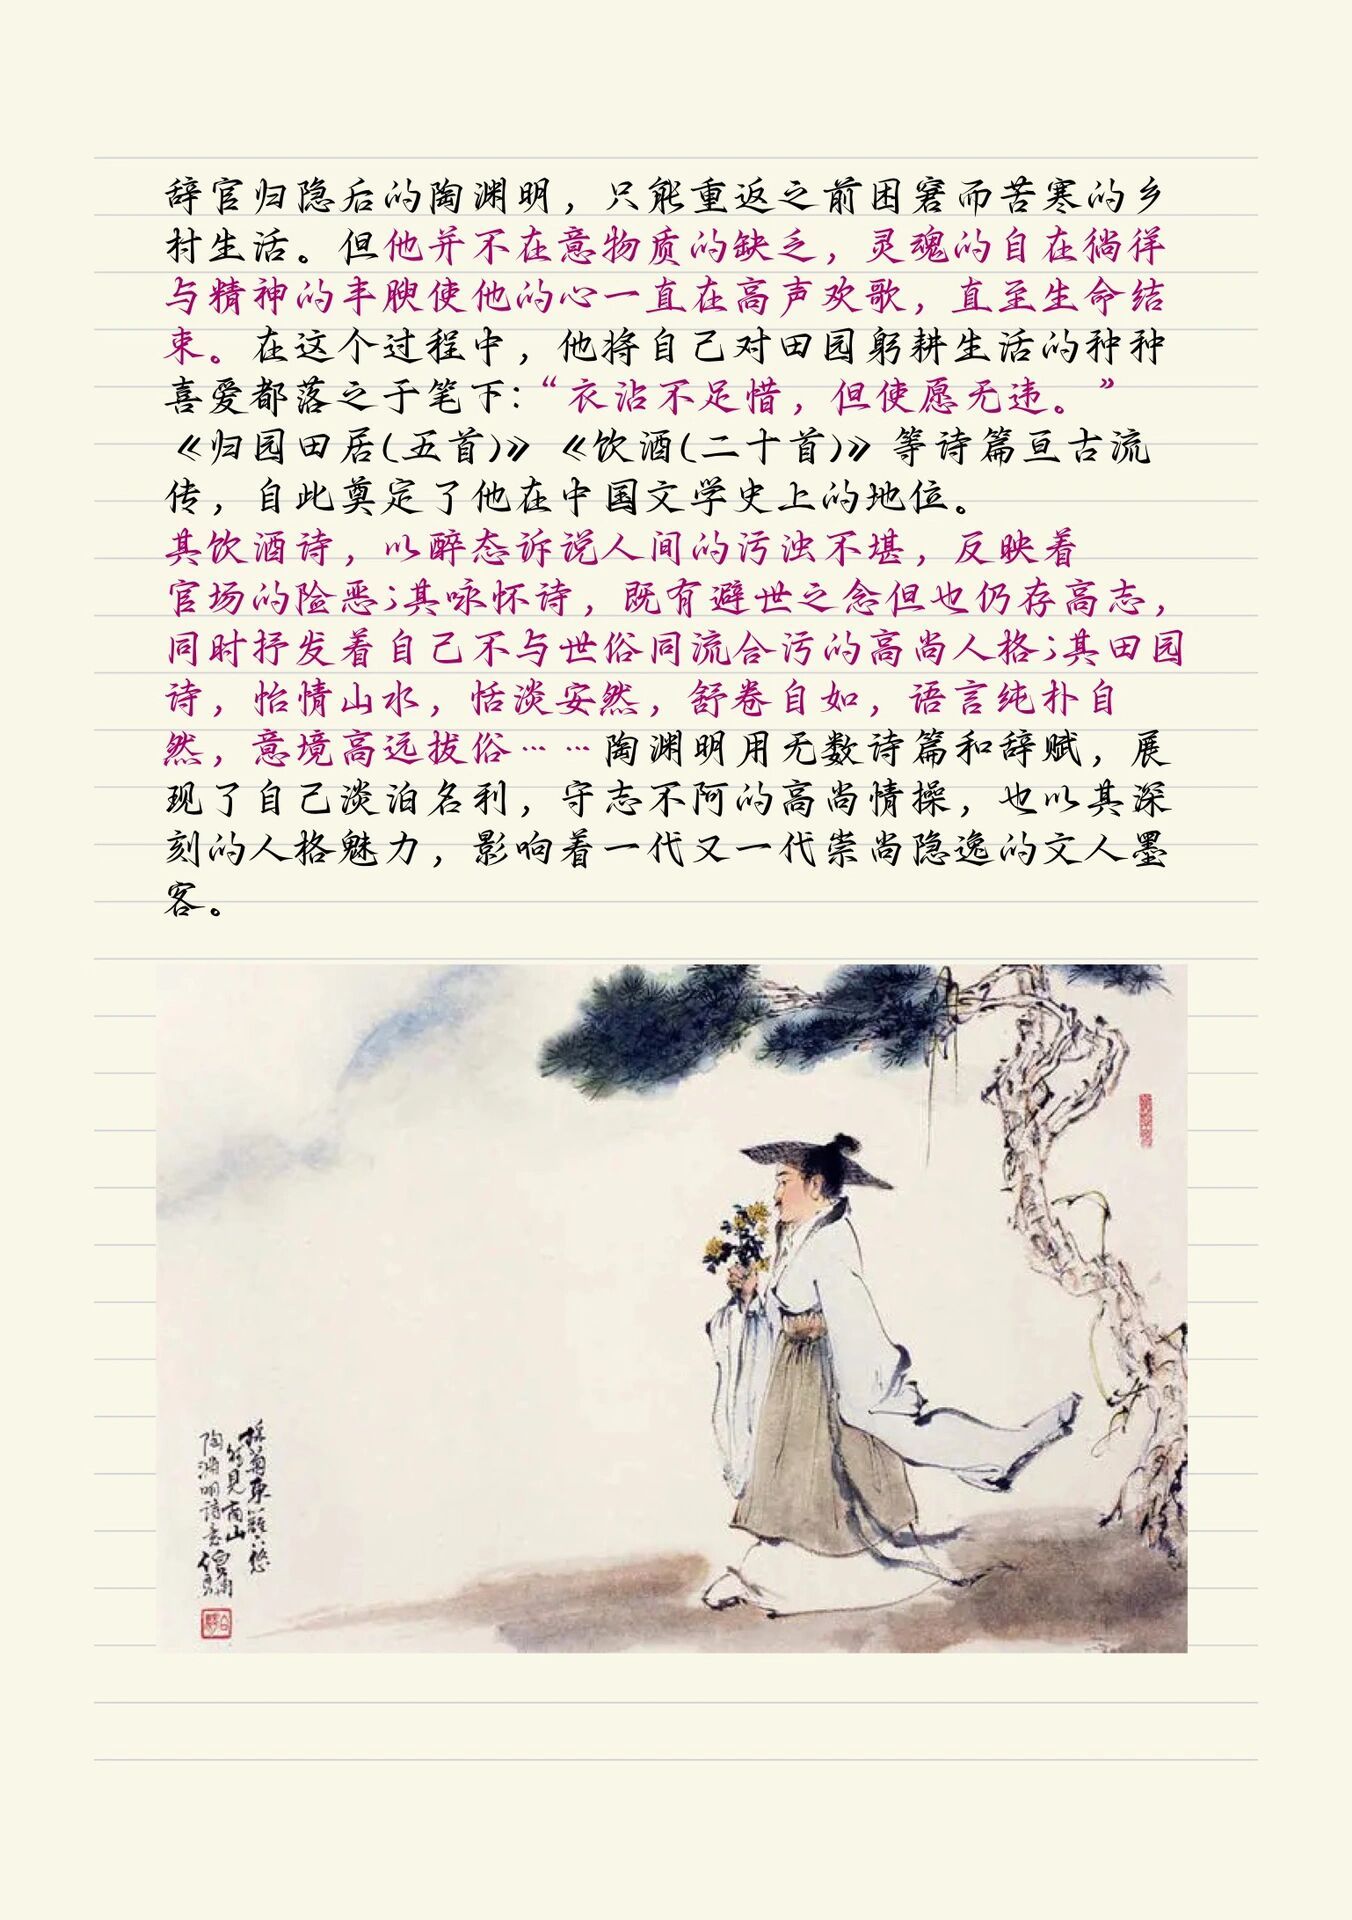 辞官归隐后的陶渊明，只能重返之前困窘而苦寒的乡
村生活。但他并不在意物质的缺乏，灵魂的自在徜徉
与精神的丰腴使他的心一直在高声欢歌，直至生命结
束。在这个过程中，他将自己对田园躬耕生活的种种
喜爱都落之于笔下：“衣沾不足惜，但使愿无违。”
《归园田居(五首)》《饮酒(二十首)》等诗篇亘古流
传，自此奠定了他在中国文学史上的地位。
其饮酒诗，以醉态诉说人间的污浊不堪，反映着
官场的险恶;其咏怀诗，既有避世之念但也仍存高志，
同时抒发着自己不与世俗同流合污的高尚人格;其田园
诗，怡情山水，恬淡安然，舒卷自如，语言纯朴自
然，意境高远拔俗……陶渊明用无数诗篇和辞赋，展
现了自己淡泊名利，守志不阿的高尚情操，也以其深
刻的人格魅力，影响着一代又一代崇尚隐逸的文人墨
客。
採菊東籬下悠
然見南山
陶渊明詩意